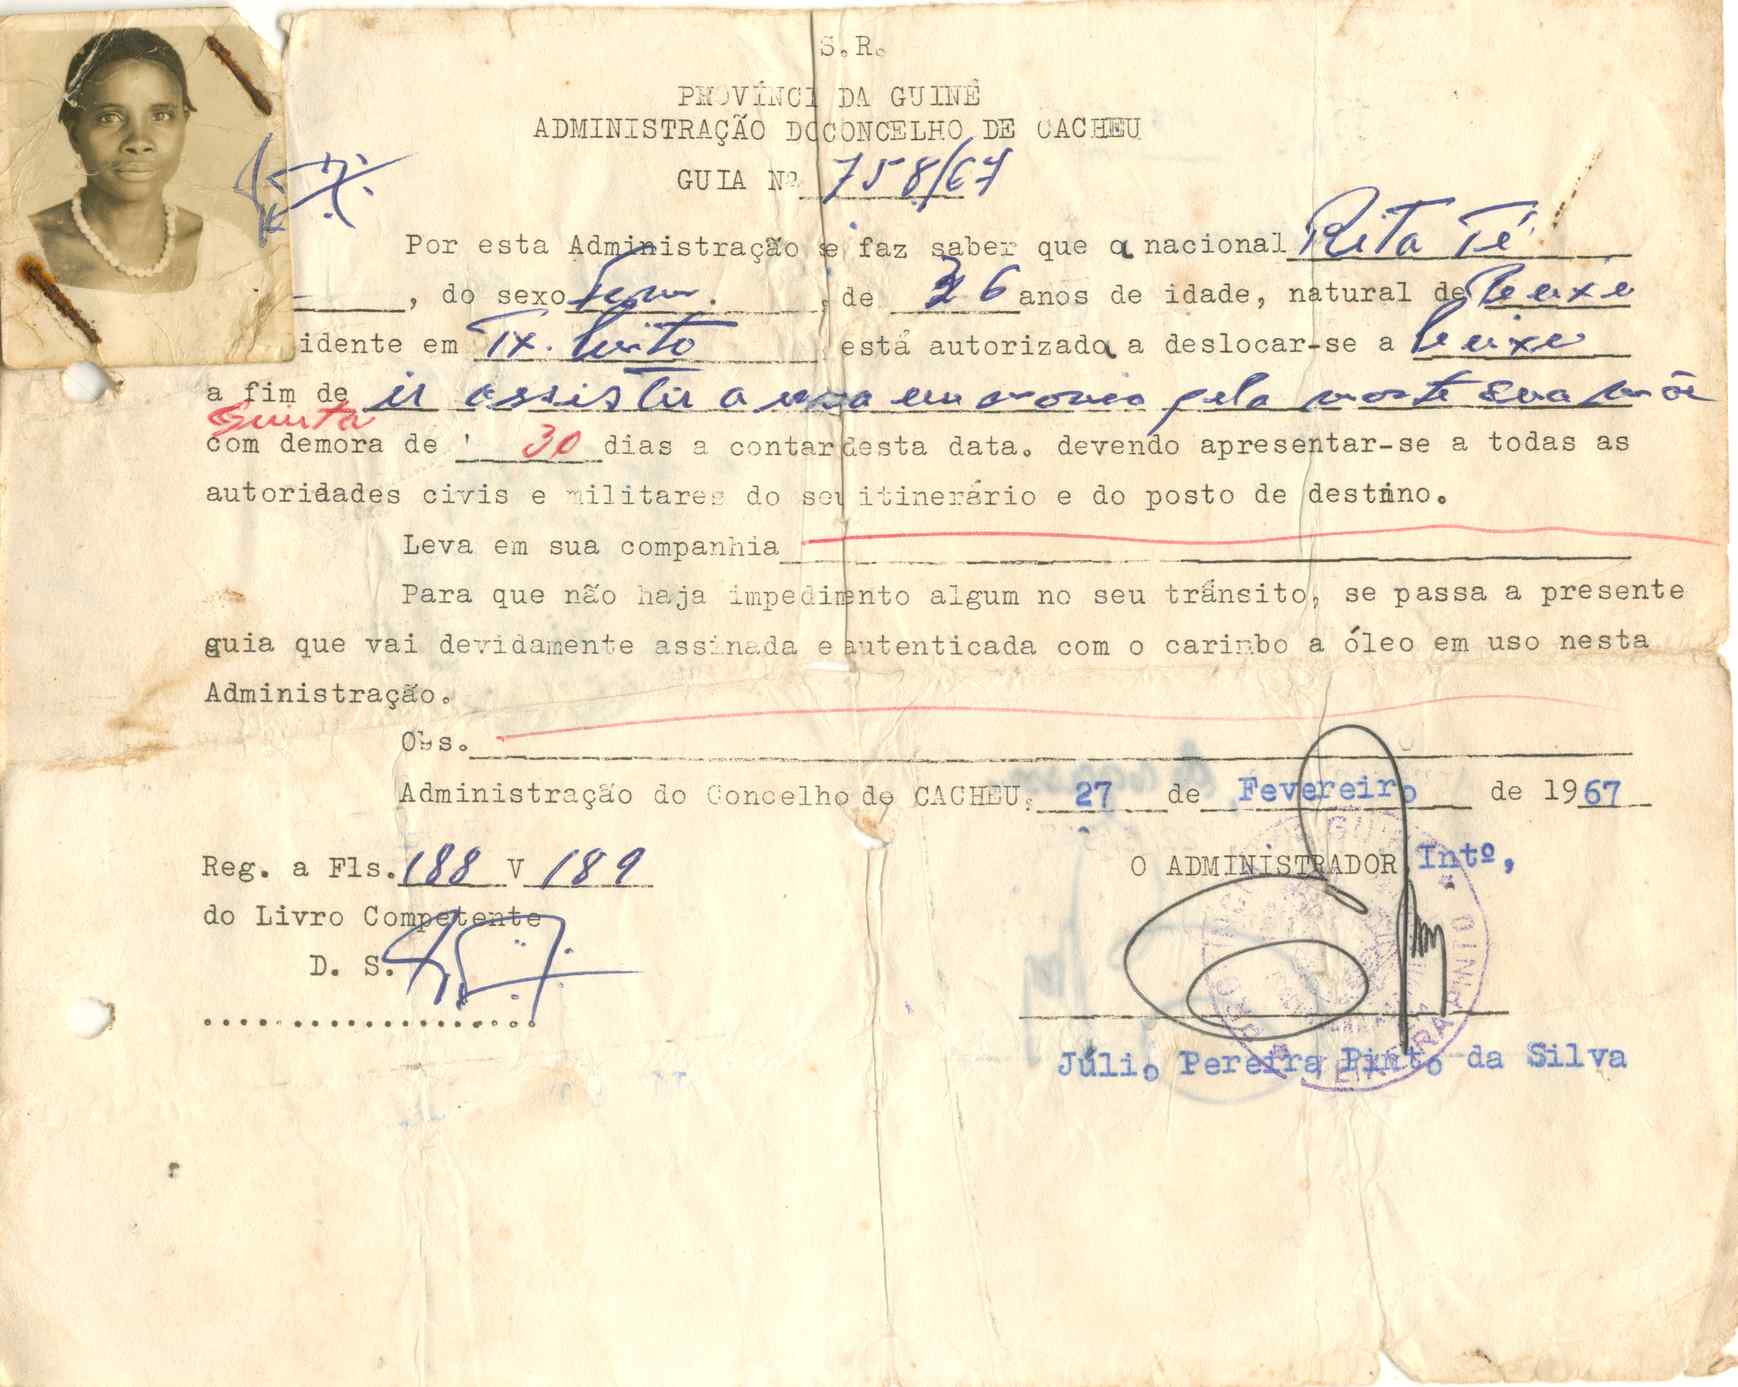 S. R.
PROVÍNCI DA GUINÉ
ADMINISTRAÇÃO DO CONCELHO DE CACHEU
GUIA Nº 758/67
Por esta Administração se faz saber que a nacional Rita Té
, do sexo Fem. , de 36 anos de idade, natural de
idente em Tx. , está autorizada a deslocar-se a
a fim de ir assistir a uma pela morte sua mãe
Quinta
com demora de 30 dias a contar desta data. devendo apresentar-se a todas as
autoridades civis e militares do seu itinerário e do posto de destino.
Leva em sua companhia
Para que não haja impedimento algum no seu trânsito, se passa a presente
guia que vai devidamente assinada e autenticada com o carimbo a óleo em uso nesta
Administração.
Obs.
Administração do Concelho de CACHEU, 27 de Fevereiro de 1967
Reg. a Fls. 188 V 189
O ADMINISTRADOR Intº,
do Livro Competente
D. S.
Júlio Pereira Pinto da Silva